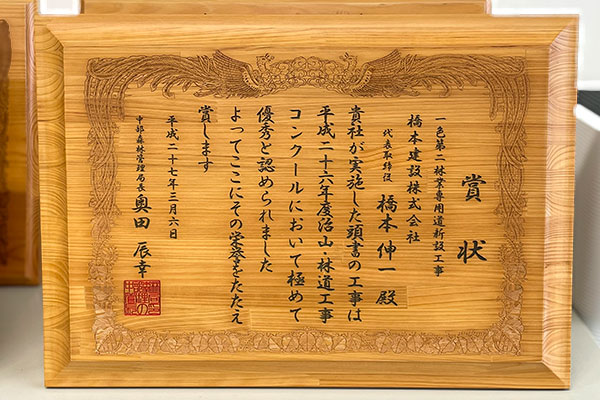 賞状
一色第二林業専用道新設工事
橋本建設株式会社
代表取締役 橋本伸一殿
貴社が実施した頭書の工事は
平成二十六年度治山・林道工事
コンクールにおいて極めて
優秀と認められました
よってここにその栄誉をたたえ
賞します
平成二十七年三月六日
中部森林管理局長 奥田辰幸